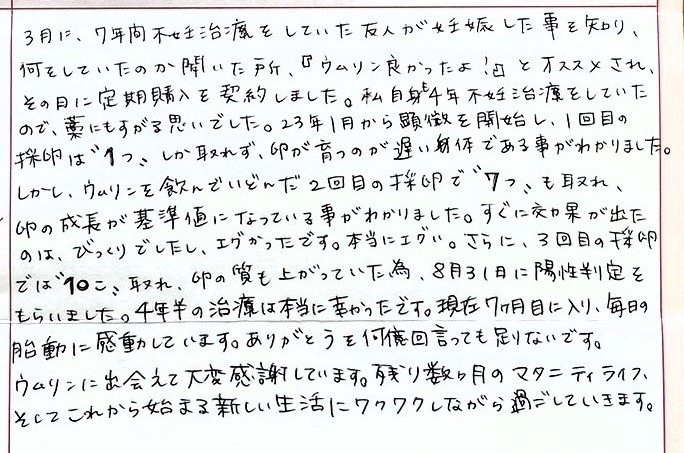 3月に、7年間不妊治療をしていた友人が妊娠した事を知り、
何をしていたのか聞いた所、『ウムリン良かったよ！』とオススメされ、
その日に定期購入を契約しました。私自身も4年不妊治療をしていた
ので、藁にもすがる思いでした。23年1月から顕微を開始し、1回目の
採卵は“1つ”しか取れず、卵が育つのが遅い身体である事がわかりました。
しかし、ウムリンを飲んでいどんだ2回目の採卵で“7つ”も取れ、
卵の成長が基準値になっている事がわかりました。すぐに効果が出た
のは、びっくりでしたし、エグかったです。本当にエグい。さらに、3回目の採卵
では“10こ”取れ、卵の質も上がっていた為、8月31日に陽性判定を
もらいました。4年半の治療は本当に辛かったです。現在7ヶ月目に入り、毎日の
胎動に感動しています。ありがとうを何億回言っても足りないです。
ウムリンに出会えて大変感謝しています。残り数ヶ月のマタニティライフ、
そしてこれから始まる新しい生活にワクワクしながら過ごしていきます。